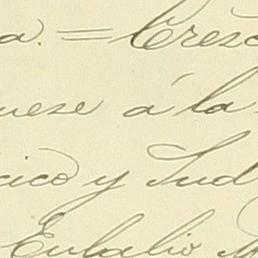 a. = Cresc
uese á la
cico y Jud
Eulalio